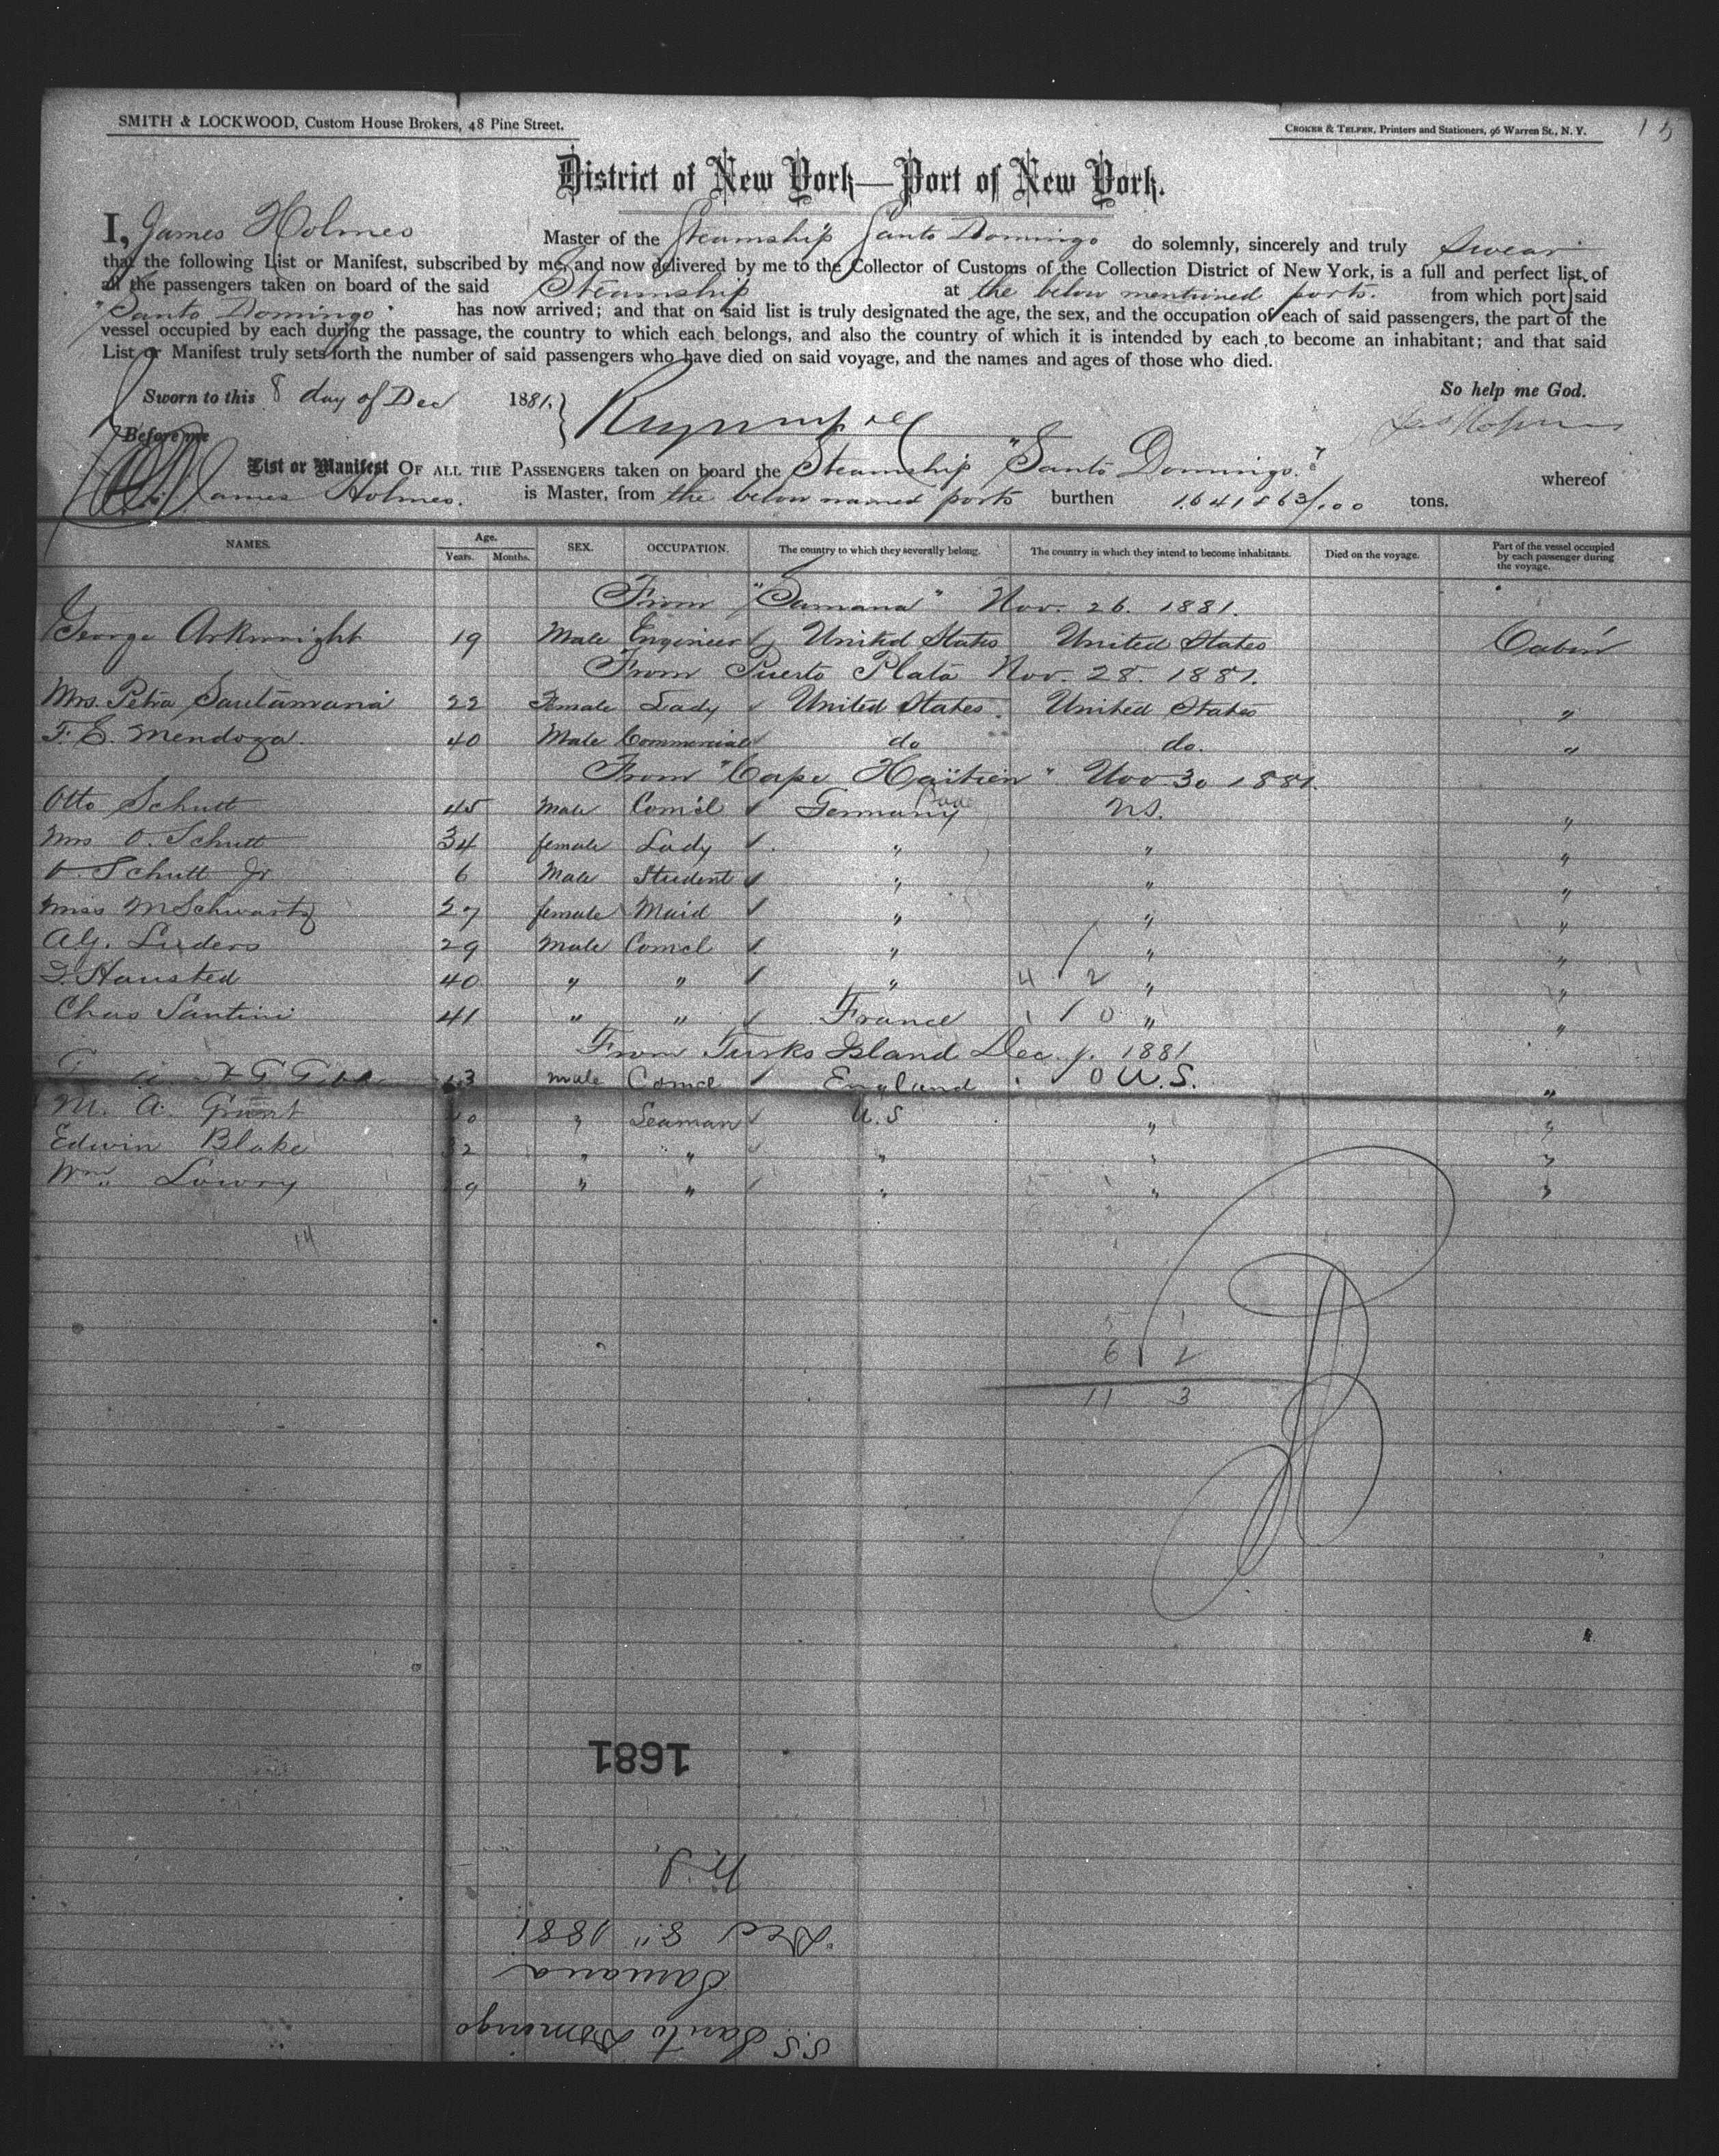 SMITH & LOCKWOOD, Custom House Brokers, 48 Pine Street.
CROKER & TELFER, Printers and Stationers, 96 Warren St., N. Y.
District of New York—Port of New York.
I, James Holmes Master of the Steamship Santo Domingo do solemnly, sincerely and truly swear
that the following List or Manifest, subscribed by me, and now delivered by me to the Collector of Customs of the Collection District of New York, is a full and perfect list of
all the passengers taken on board of the said Steamship at the below mentioned ports. from which port said
"Santo Domingo" has now arrived; and that on said list is truly designated the age, the sex, and the occupation of each of said passengers, the part of the
vessel occupied by each during the passage, the country to which each belongs, and also the country of which it is intended by each to become an inhabitant; and that said
List or Manifest truly sets forth the number of said passengers who have died on said voyage, and the names and ages of those who died.
Sworn to this 8 day of Dec 1881. So help me God.
Before me Jas Holmes
List or Manifest OF ALL THE PASSENGERS taken on board the Steamship "Santo Domingo." whereof
James Holmes. is Master, from the below named ports burthen 1641 63/100 tons.
NAMES. Age. Years. Months. SEX. OCCUPATION. The country to which they severally belong. The country in which they intend to become inhabitants. Died on the voyage. Part of the vessel occupied by each passenger during the voyage.
From "Samana" Nov. 26. 1881.
George Arkwright 19 Male Engineer United States United States Cabin
From Puerto Plata Nov. 28. 1881.
Mrs. Petra Santamaria 22 Female Lady United States United States "
F. E. Mendoza. 40 Male Commercial do do. "
From "Cape Haïtien" Nov 30 1881.
Otto Schutt 45 Male Comcl Germany U.S. "
Mrs O. Schutt 34 female Lady " " "
O. Schutt Jr 6 Male Student " " "
Miss M Schwartz 27 female Maid " " "
Alf. Luders 29 Male Comcl " " "
40 " " " 4 2 " "
Chas Santini 41 " " France 1 0 " "
From Turks Island Dec 1881
male Comcl England 0 U.S. "
M. A. Grant Seaman U.S " "
Edwin Blake " " " " "
Wm. Lowry " " " " "
14
6 2
11 3
1681
N.Y.
Dec 8" 1881
Samana
S.S. Santo Domingo